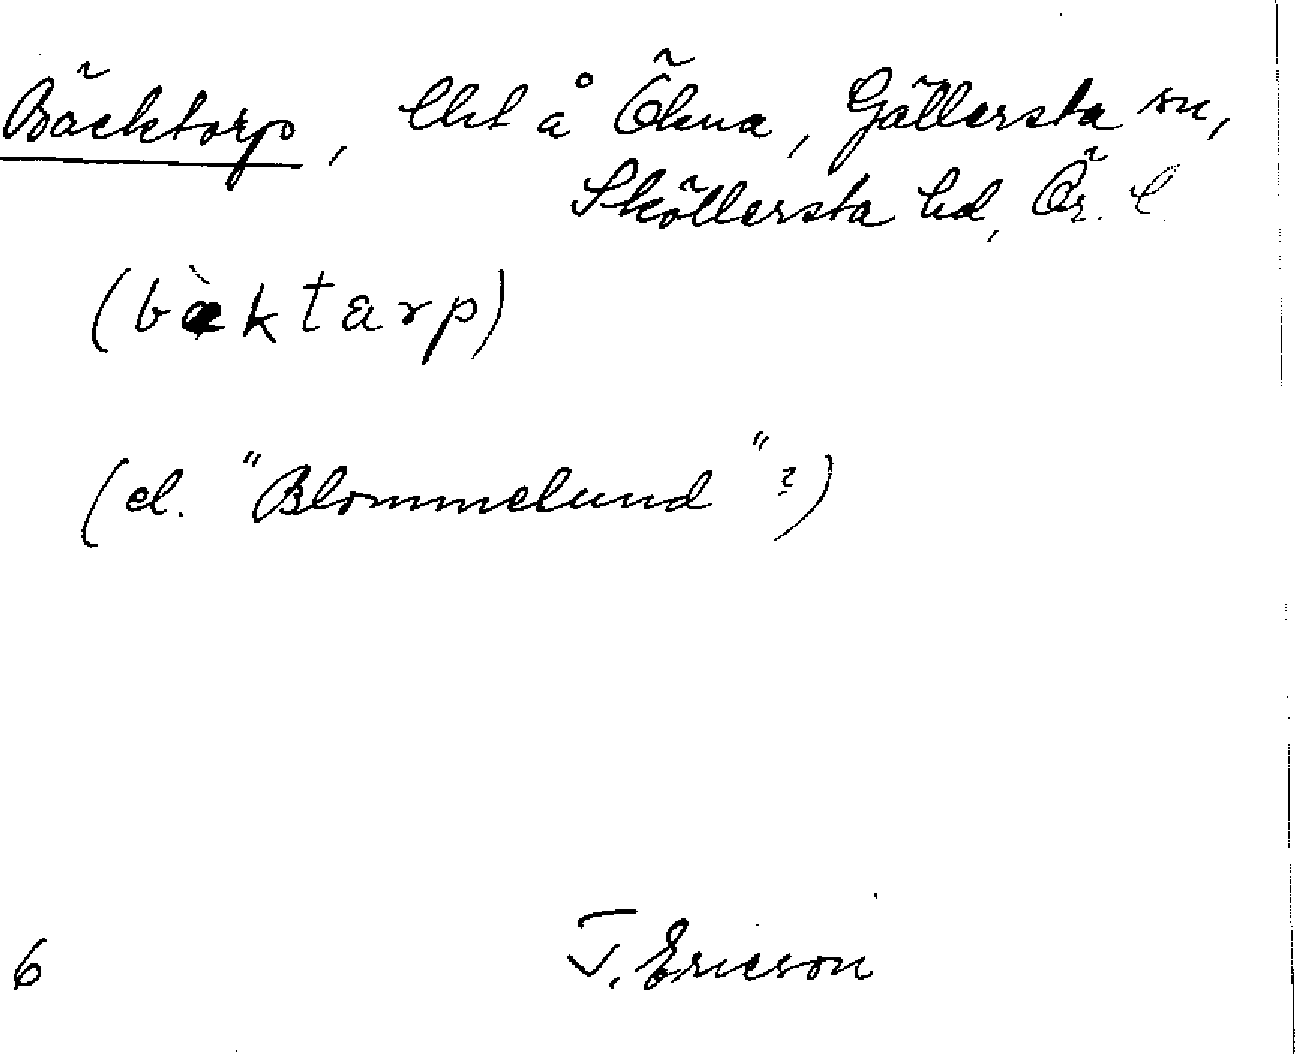 Bäcktorp, lht å Ökna, Gällersta sn,
Sköllersta hd, Ör. l
(bæ̀ktarp)
(el. "Blommelund"?)
6 T. Ericson